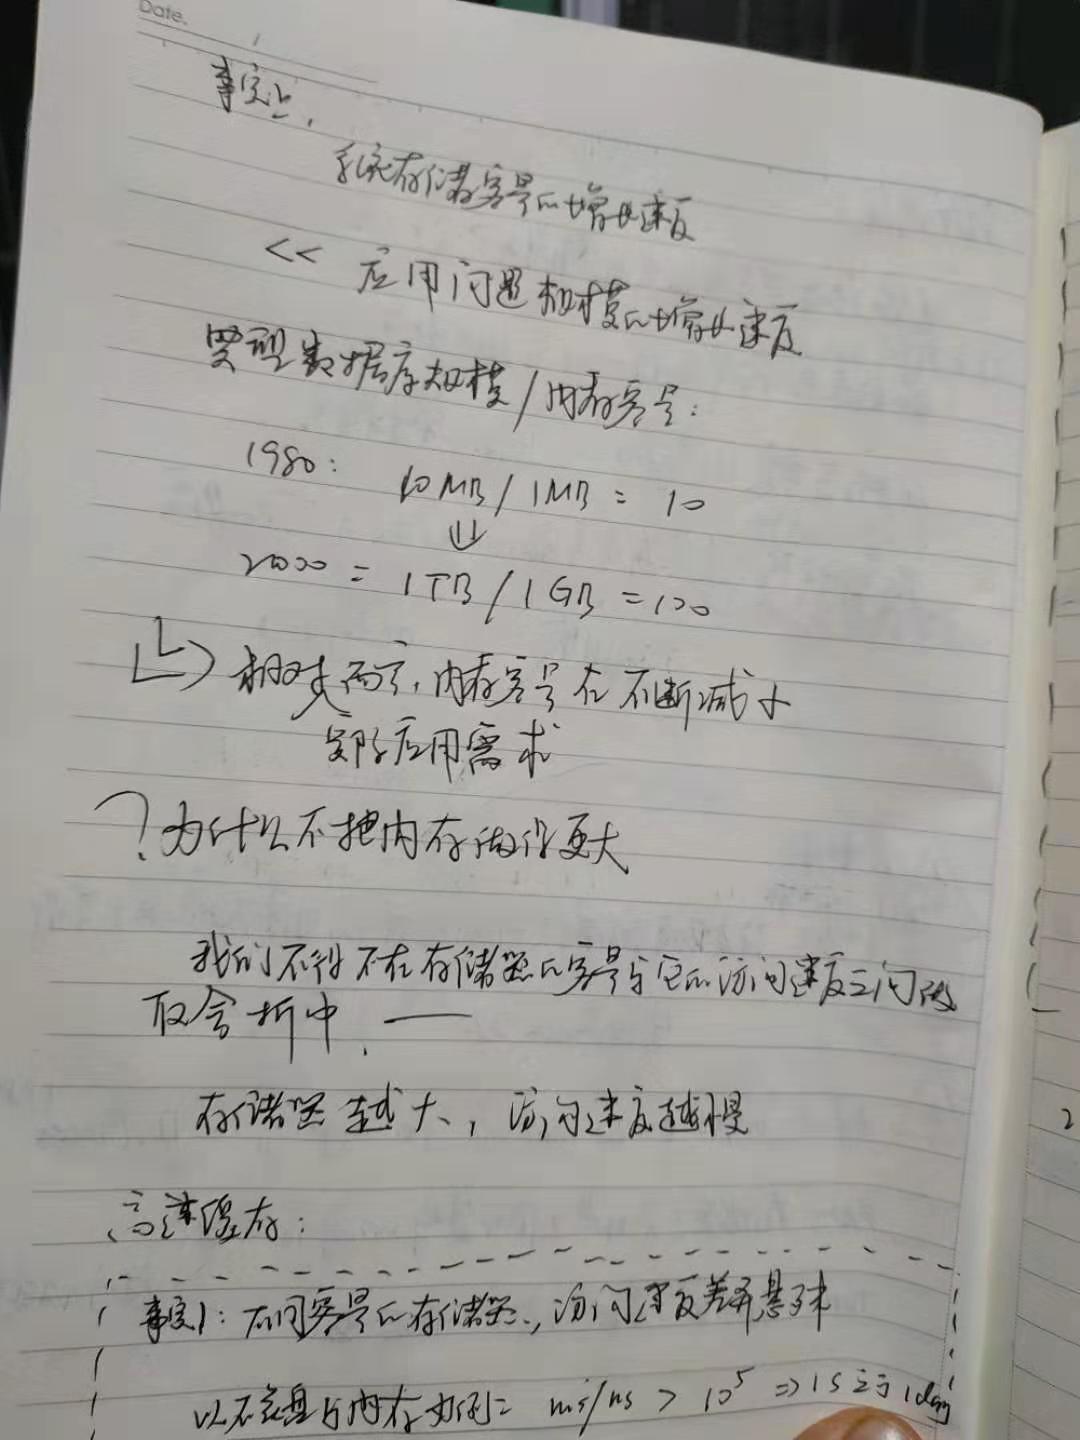 Date.
事实上,
系统存储容量的增长速度
<< 应用问题规模的增长速度
典型数据库规模/内存容量:
1980: 10MB/1MB = 10
⇓
2000 = 1TB/1GB = 100
相对而言,内存容量在不断减小
实际应用需求
? 为什么不把内存做得更大
我们不得不在存储器的容量与它的访问速度之间做
取舍折中 ——
存储器越大,访问速度越慢
高速缓存:
事实1: 不同容量的存储器,访问速度差异悬殊
以磁盘与内存为例= ms/ns > 10⁵ => 1s之于1day
2